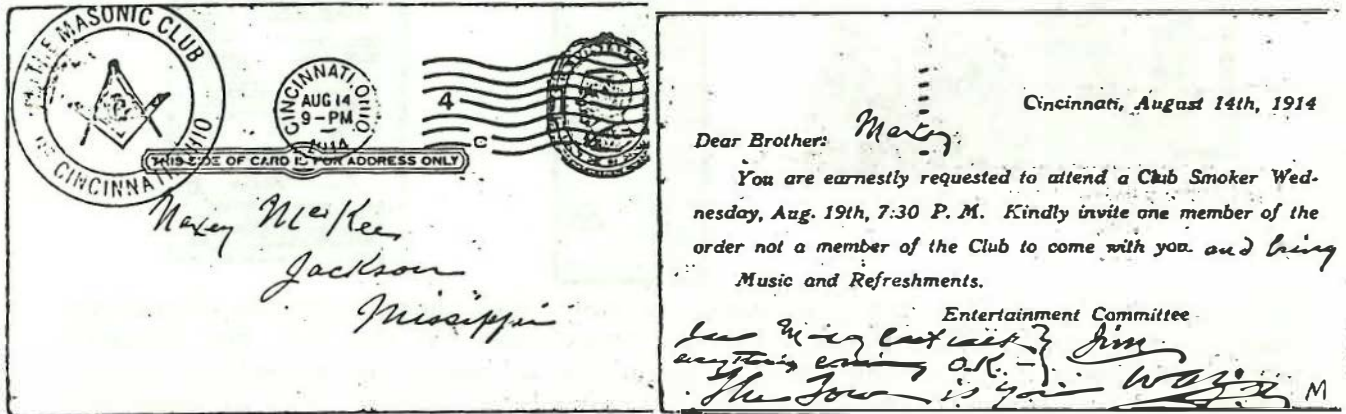 THE MASONIC CLUB
OF CINCINNATI OHIO
CINCINNATI, OHIO
AUG 14
9-PM
1914
4
C
THIS SIDE OF CARD IS FOR ADDRESS ONLY
Maxey McKee
Jackson
Missippi
Cincinnati, August 14th, 1914
Dear Brother: Maxey
You are earnestly requested to attend a Club Smoker Wed-
nesday, Aug. 19th, 7:30 P. M. Kindly invite one member of the
order not a member of the Club to come with you and bring
Music and Refreshments.
Entertainment Committee
Jim
everything coming O.K.
The Town is your
M